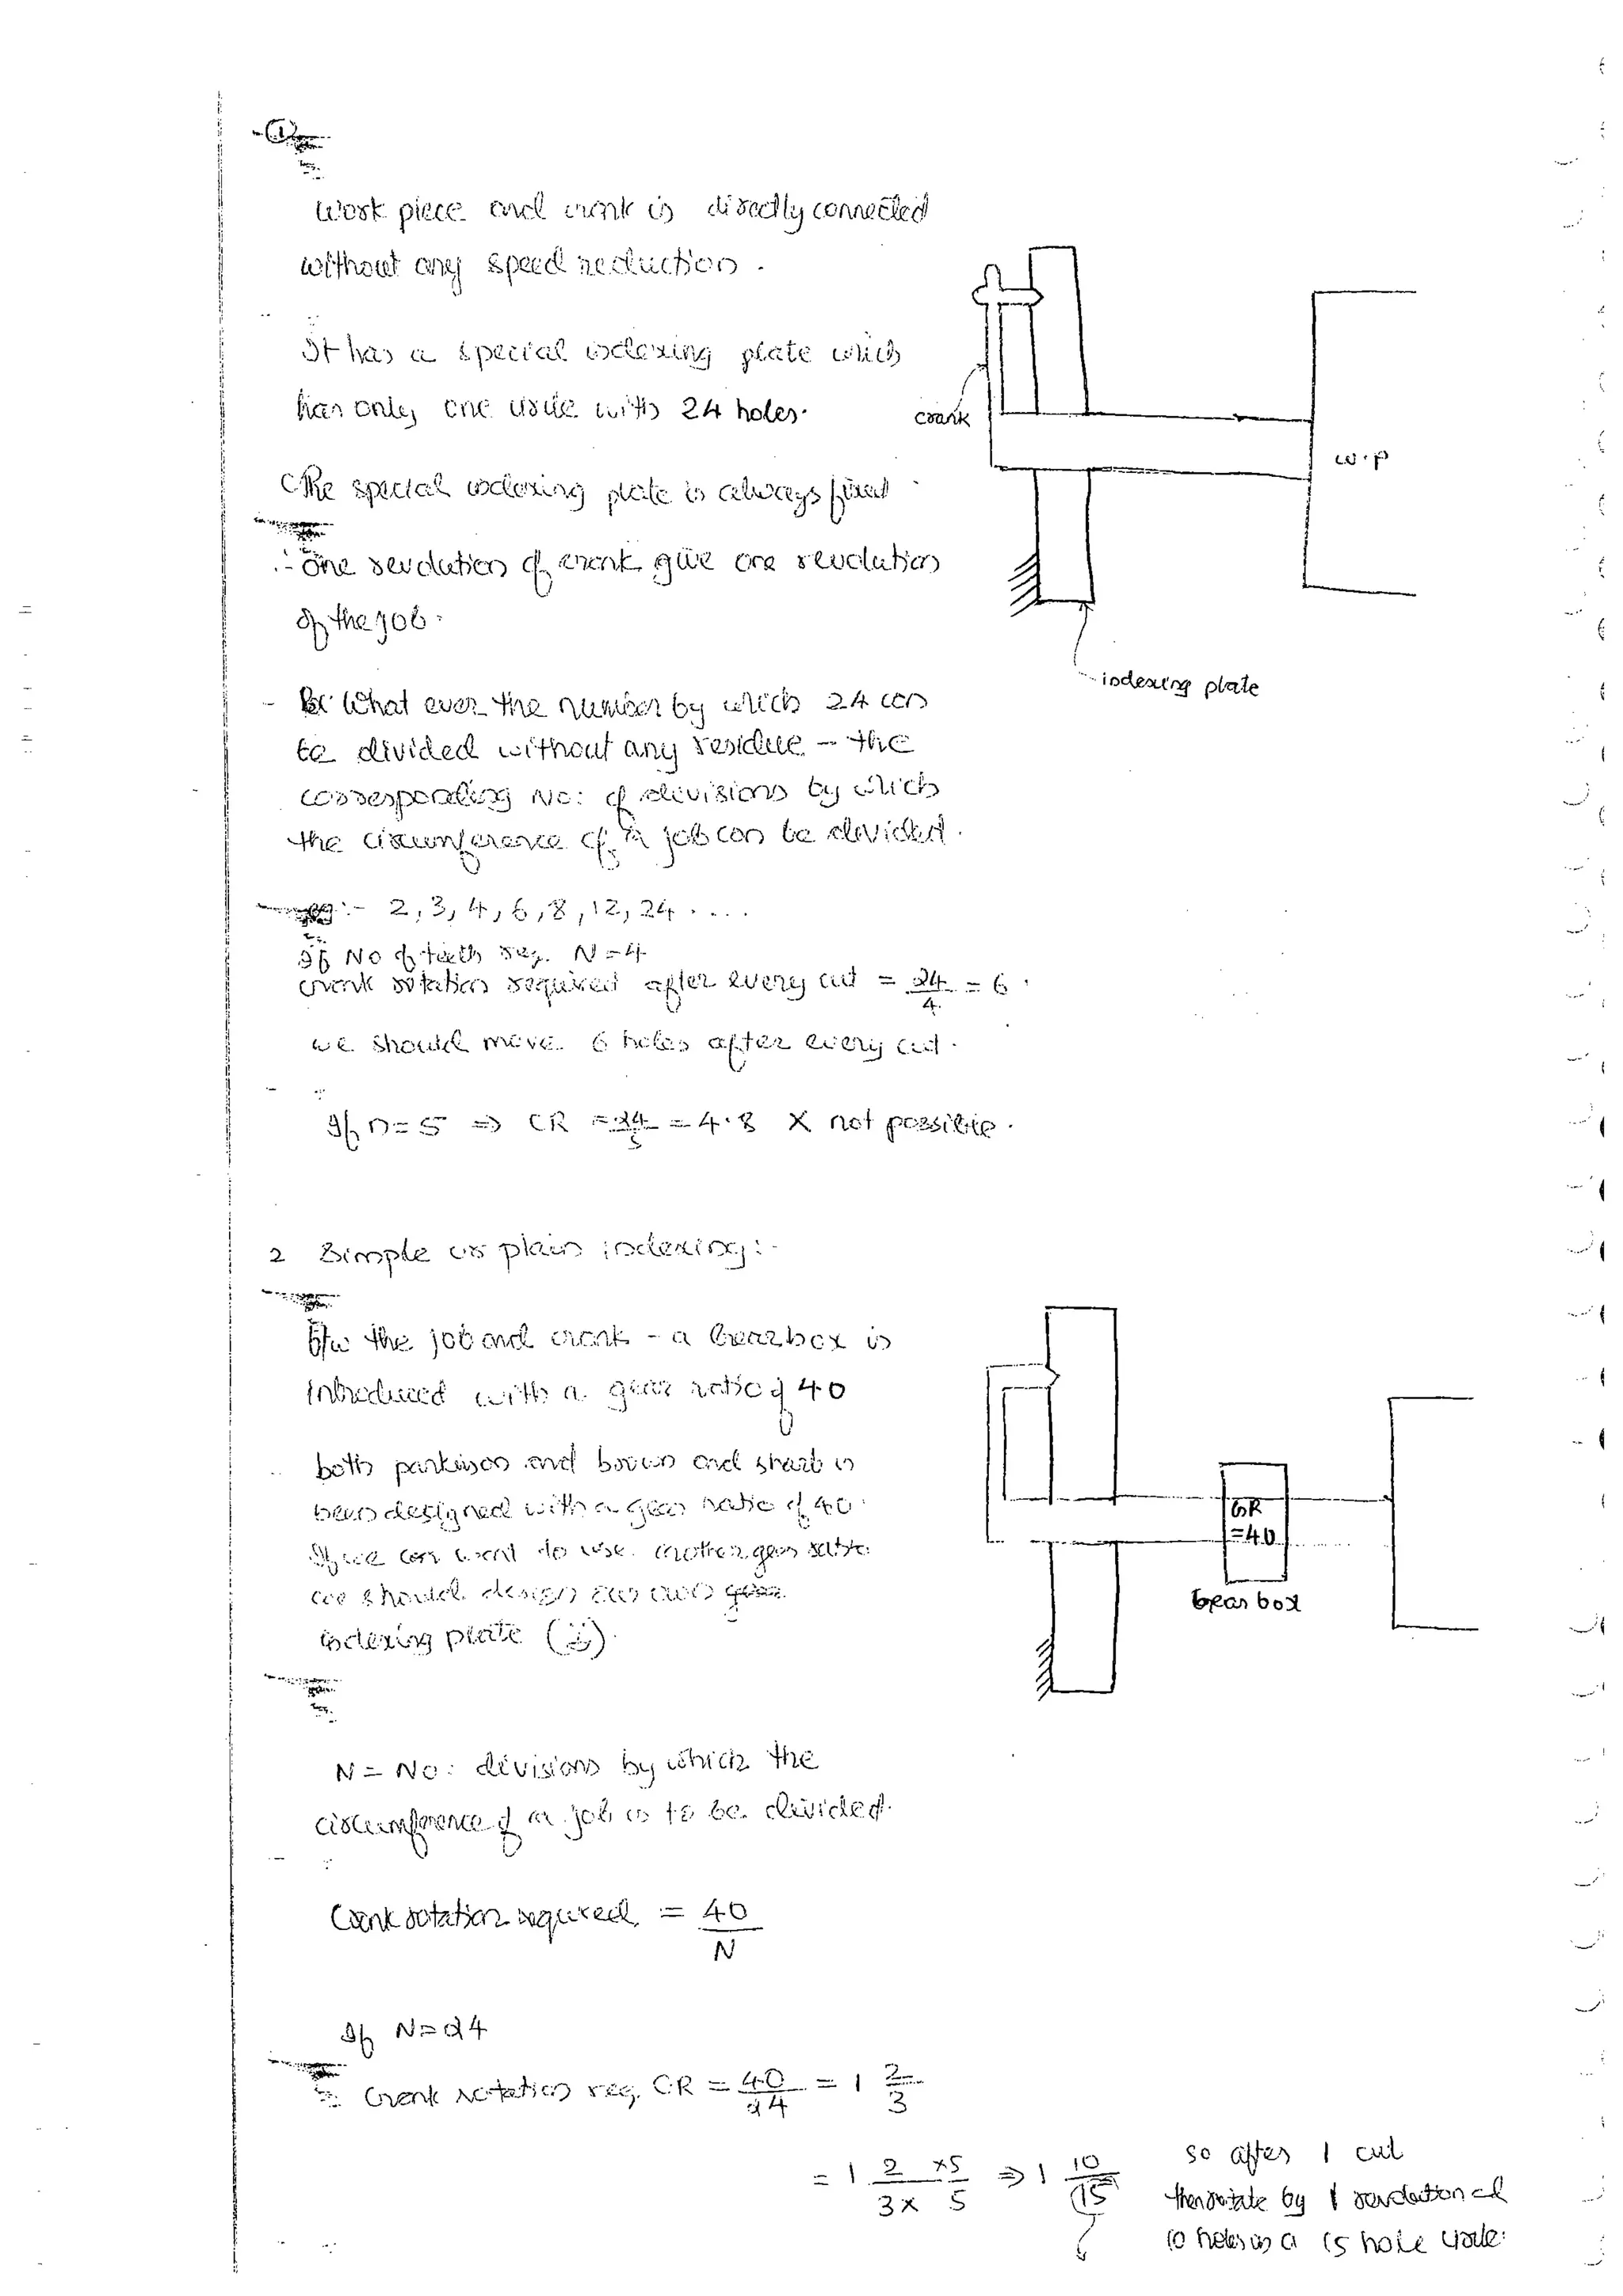 ①
Work piece and crank is directly connected
without any speed reduction .
It has a special indexing plate which
has only one circle with 24 holes.
crank
w.p
The special indexing plate is always fixed
:- One revolution of crank give one revolution
of the job.
indexing plate
- What ever the number by which 24 can
be divided without any residue - the
corresponding No: of divisions by which
the circumference of a job can be divided .
eg :- 2, 3, 4, 6, 8, 12, 24 . ...
If No of teeth req. N = 4
crank rotation required after every cut = 24/4 = 6 .
we should move 6 holes after every cut .
If n = 5 ⇒ CR = 24/5 = 4.8 X not possible .
2 Simple or plain indexing : -
b/w the job and crank - a Gearbox is
introduced with a gear ratio of 40
both parkinson and brown and sharb is
been designed with a gear ratio of 40 .
If we want to use another gear ratio
we should design our own gear
indexing plate
GR
=40
Gear box
N = No: divisions by which the
circumference of a job is to be divided.
Crank rotation required = 40/N
If N = 24
Crank rotation req. CR = 40/24 = 1 2/3
= 1 2/3 × ×5/5 ⇒ 1 10/15
so after 1 cut
then rotate by 1 revolution
10 holes in a 15 hole circle.